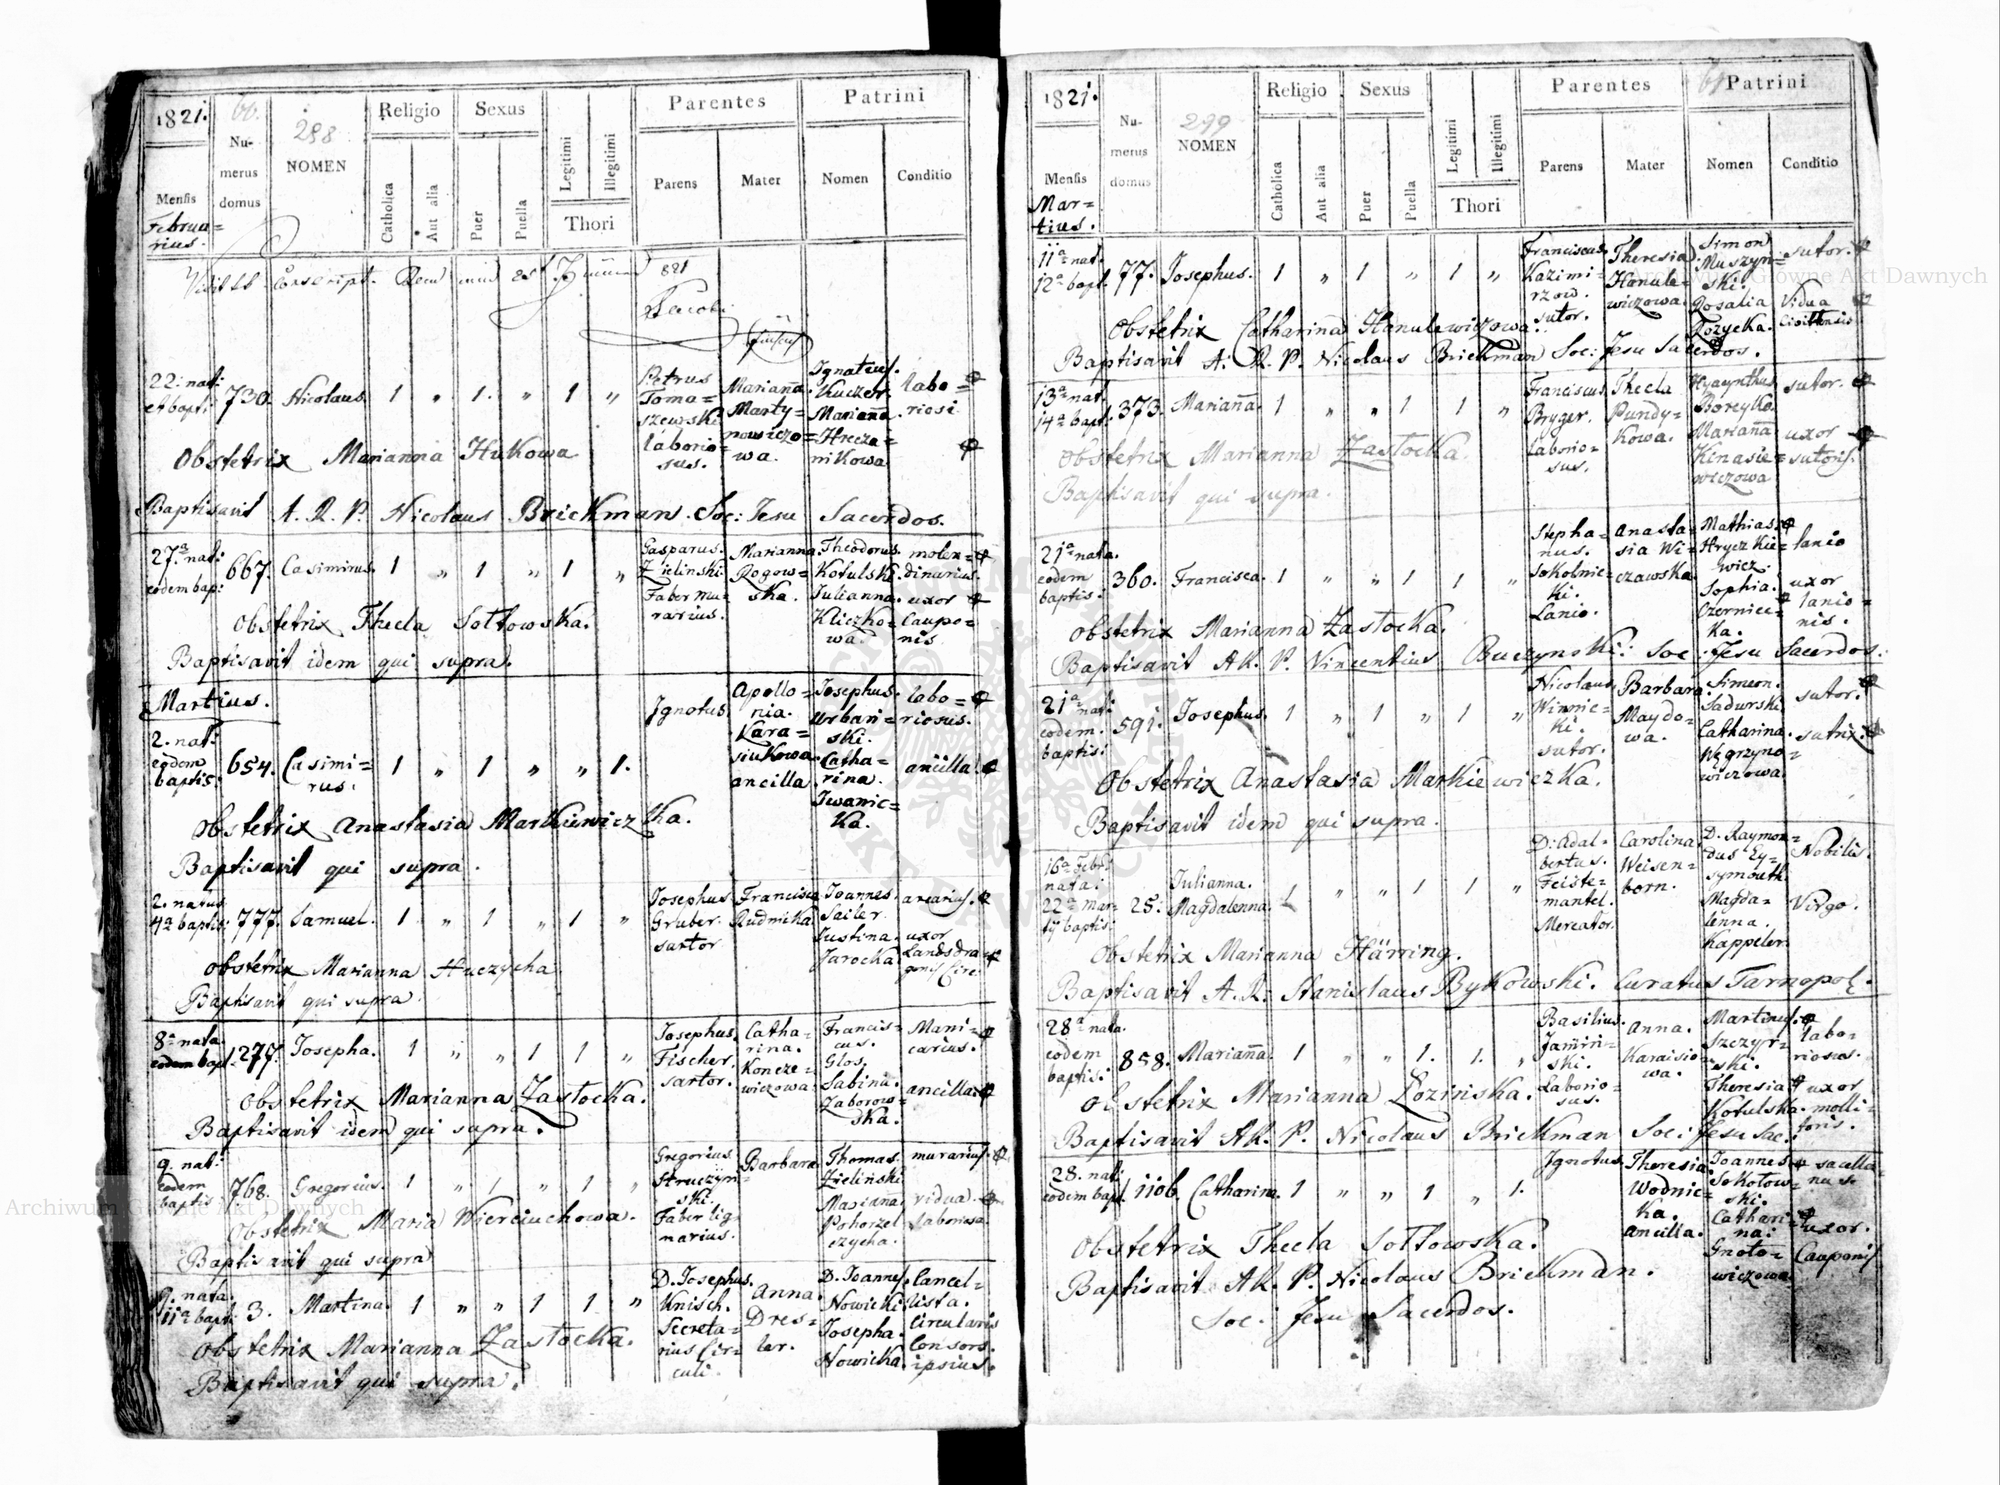 1821.
298
Numerus domus
NOMEN
Religio
Catholica
Aut alia
Sexus
Puer
Puella
Legitimi
Illegitimi
Thori
Parentes
Parens
Mater
Patrini
Nomen
Conditio
Mensis
Februa=
rius.
22. nat:
et bapti:
730.
Nicolaus
1 „ 1. „ 1 „
Petrus
Toma=
szewski
laborio=
sus.
Marianna
Marty=
nowiczo=
wa.
Ignatius.
Kucker.
Marianna.
Hrecza=
nikowa
labo=
riosi
Obstetrix Marianna Hukowa
Baptisavit A. R. P. Nicolaus Brickman. Soc: Jesu Sacerdos.
27.a nat:
eodem bap:
667.
Casimirus.
1 „ 1 „ 1 „
Gasparus.
Zielinski.
Faber mu=
rarius.
Marianna
Rogow=
ska.
Theodorus.
Kotulski.
Julianna.
Kliczko=
wa.
molen=
dinarius.
uxor
Caupo=
nis
Obstetrix Thecla Sołtowska.
Baptisavit idem qui supra.
Martius.
2. nat:
eodem
baptis:
654.
Casimi=
rus.
1 „ 1 „ „ 1.
Ignotus.
Apollo=
nia.
Kara=
siukowa
ancilla.
Josephus.
Urbani=
ski.
Catha=
rina.
Iwanic=
ka.
labo=
riosus.
ancilla.
Obstetrix Anastasia Markiewiczka.
Baptisavit qui supra.
2. natus
4a baptis:
777.
Samuel.
1 „ 1 „ 1 „
Josephus
Gruber.
sartor
Francisca
Rudnicka
Joannes
Sailer
Justina.
Jarocka
uxor
Obstetrix Marianna Huczycha
Baptisavit qui supra.
8a nata
eodem bapt.
1277.
Josepha.
1 „ „ 1 1 „
Josephus.
Fischer,
sartor.
Catha=
rina.
Koncze=
wiczowa.
Francis=
cus.
Glos.
Sabina.
Zaborow=
ska.
Mani=
carius.
ancilla.
Obstetrix Marianna Zastocka.
Baptisavit idem qui supra.
9. nat:
eodem
baptis
768.
Gregorius.
1 „ 1 „ 1 „
Gregorius
Struczyn=
ski.
Faber lig=
narius.
Barbara
Thomas.
Zielinski
Marianna
Pohorzel
czycha.
murarius.
vidua.
laboriosa
Obstetrix Maria Wierciuchowa.
Baptisavit qui supra
9. nata.
11a bapt:
3.
Martina.
1 „ „ 1 1 „
D. Josephus.
Knisch.
Secreta=
rius Cir=
culi.
Anna.
Dres=
ler.
D. Joannes.
Nowicki
Josepha.
Nowicka.
Cancel=
lista.
Circularis
Consors.
ipsius.
Obstetrix Marianna Zastocka.
Baptisavit qui supra.
1821.
299
Numerus domus
NOMEN
Religio
Catholica
Aut alia
Sexus
Puer
Puella
Legitimi
Illegitimi
Thori
Parentes
Parens
Mater
Patrini
Nomen
Conditio
Mensis
Mar=
tius.
11a nat.
12a bapt.
77.
Josephus.
1 „ 1 „ 1 „
Franciscus.
Kazimi=
rzow.
sutor.
Theresia
Hanule=
wiczowa.
Simon
Muszyn=
ski.
Rosalia
Rożycka.
sutor.
Vidua
Obstetrix Catharina Hanulewiczowa.
Baptisavit A: R. P. Nicolaus Brickman Soc: Jesu Sacerdos.
13a nat.
14a bapt.
373.
Marianna.
1 „ „ 1 1 „
Franciscus
Bryger.
laborio=
sus.
Thecla
Pundy=
kowa.
Hyacynthus
Boreyko.
Marianna
Kinasie=
wiczowa
sutor.
uxor
sutoris.
Obstetrix Marianna Zastocka.
Baptisavit qui supra.
21a nata.
eodem
baptis:
360.
Francisca.
1 „ „ 1 1 „
Stepha=
nus.
Sokolnic=
ki.
Lanio.
Anasta=
sia Wi=
czawska
Mathias.
Hryczkie=
wicz.
Sophia.
Czerniec=
ka.
lanio
uxor
lanio=
nis.
Obstetrix Marianna Zastocka.
Baptisavit AR. P. Vincentius Buczynski: Soc: Jesu Sacerdos.
21a
nat:
eodem.
baptis:
591.
Josephus.
1 „ 1 „ 1 „
Nicolaus
Winnic=
ki.
sutor.
Barbara
Maydo=
wa.
Simeon.
Sadurski
Catharina.
Węgrzyno=
wiczowa.
sutor.
sutrix.
Obstetrix Anastasia Markiewiczka.
Baptisavit idem qui supra.
16a Febr:
nata:
22a Mar=
tij baptis:
25.
Julianna.
Magdalenna.
1 „ „ 1 1 „
D: Adal=
bertus.
Feiste=
mantel.
Mercator.
Carolina
Weisen=
born.
D. Raymon=
dus Ey=
symouth.
Magda=
lenna.
Kappeler.
Nobilis.
Virgo.
Obstetrix Marianna Härring.
Baptisavit A. R: Stanislaus Bykowski. Curatus Tarnopol.
28a nata.
eodem
baptis:
858.
Marianna.
1 „ „ 1. 1. „
Basilius.
Jamin=
ski.
Laborio=
sus.
Anna.
Karaisio=
wa.
Martinus.
Szczyr=
ski.
Theresia
Kotulska.
labo=
riosus.
uxor
molli=
toris.
Obstetrix Marianna Łozinska.
Baptisavit AR. P. Nicolaus Brickman Soc: Jesu Sac:
28. nat.
eodem bapt.
1106.
Catharina.
1 „ „ 1 „ 1.
Ignotus.
Theresia
Wodnic=
ka.
ancilla.
Joannes
Sokołow=
ski.
Cathari=
na:
Gnoto=
wiczowa.
uxor.
Cauponis
Obstetrix Thecla Sołtowska.
Baptisavit AR. P. Nicolaus Brickman.
Soc: Jesu Sacerdos.
Archiwum Główne Akt Dawnych
Archiwum Główne Akt Dawnych